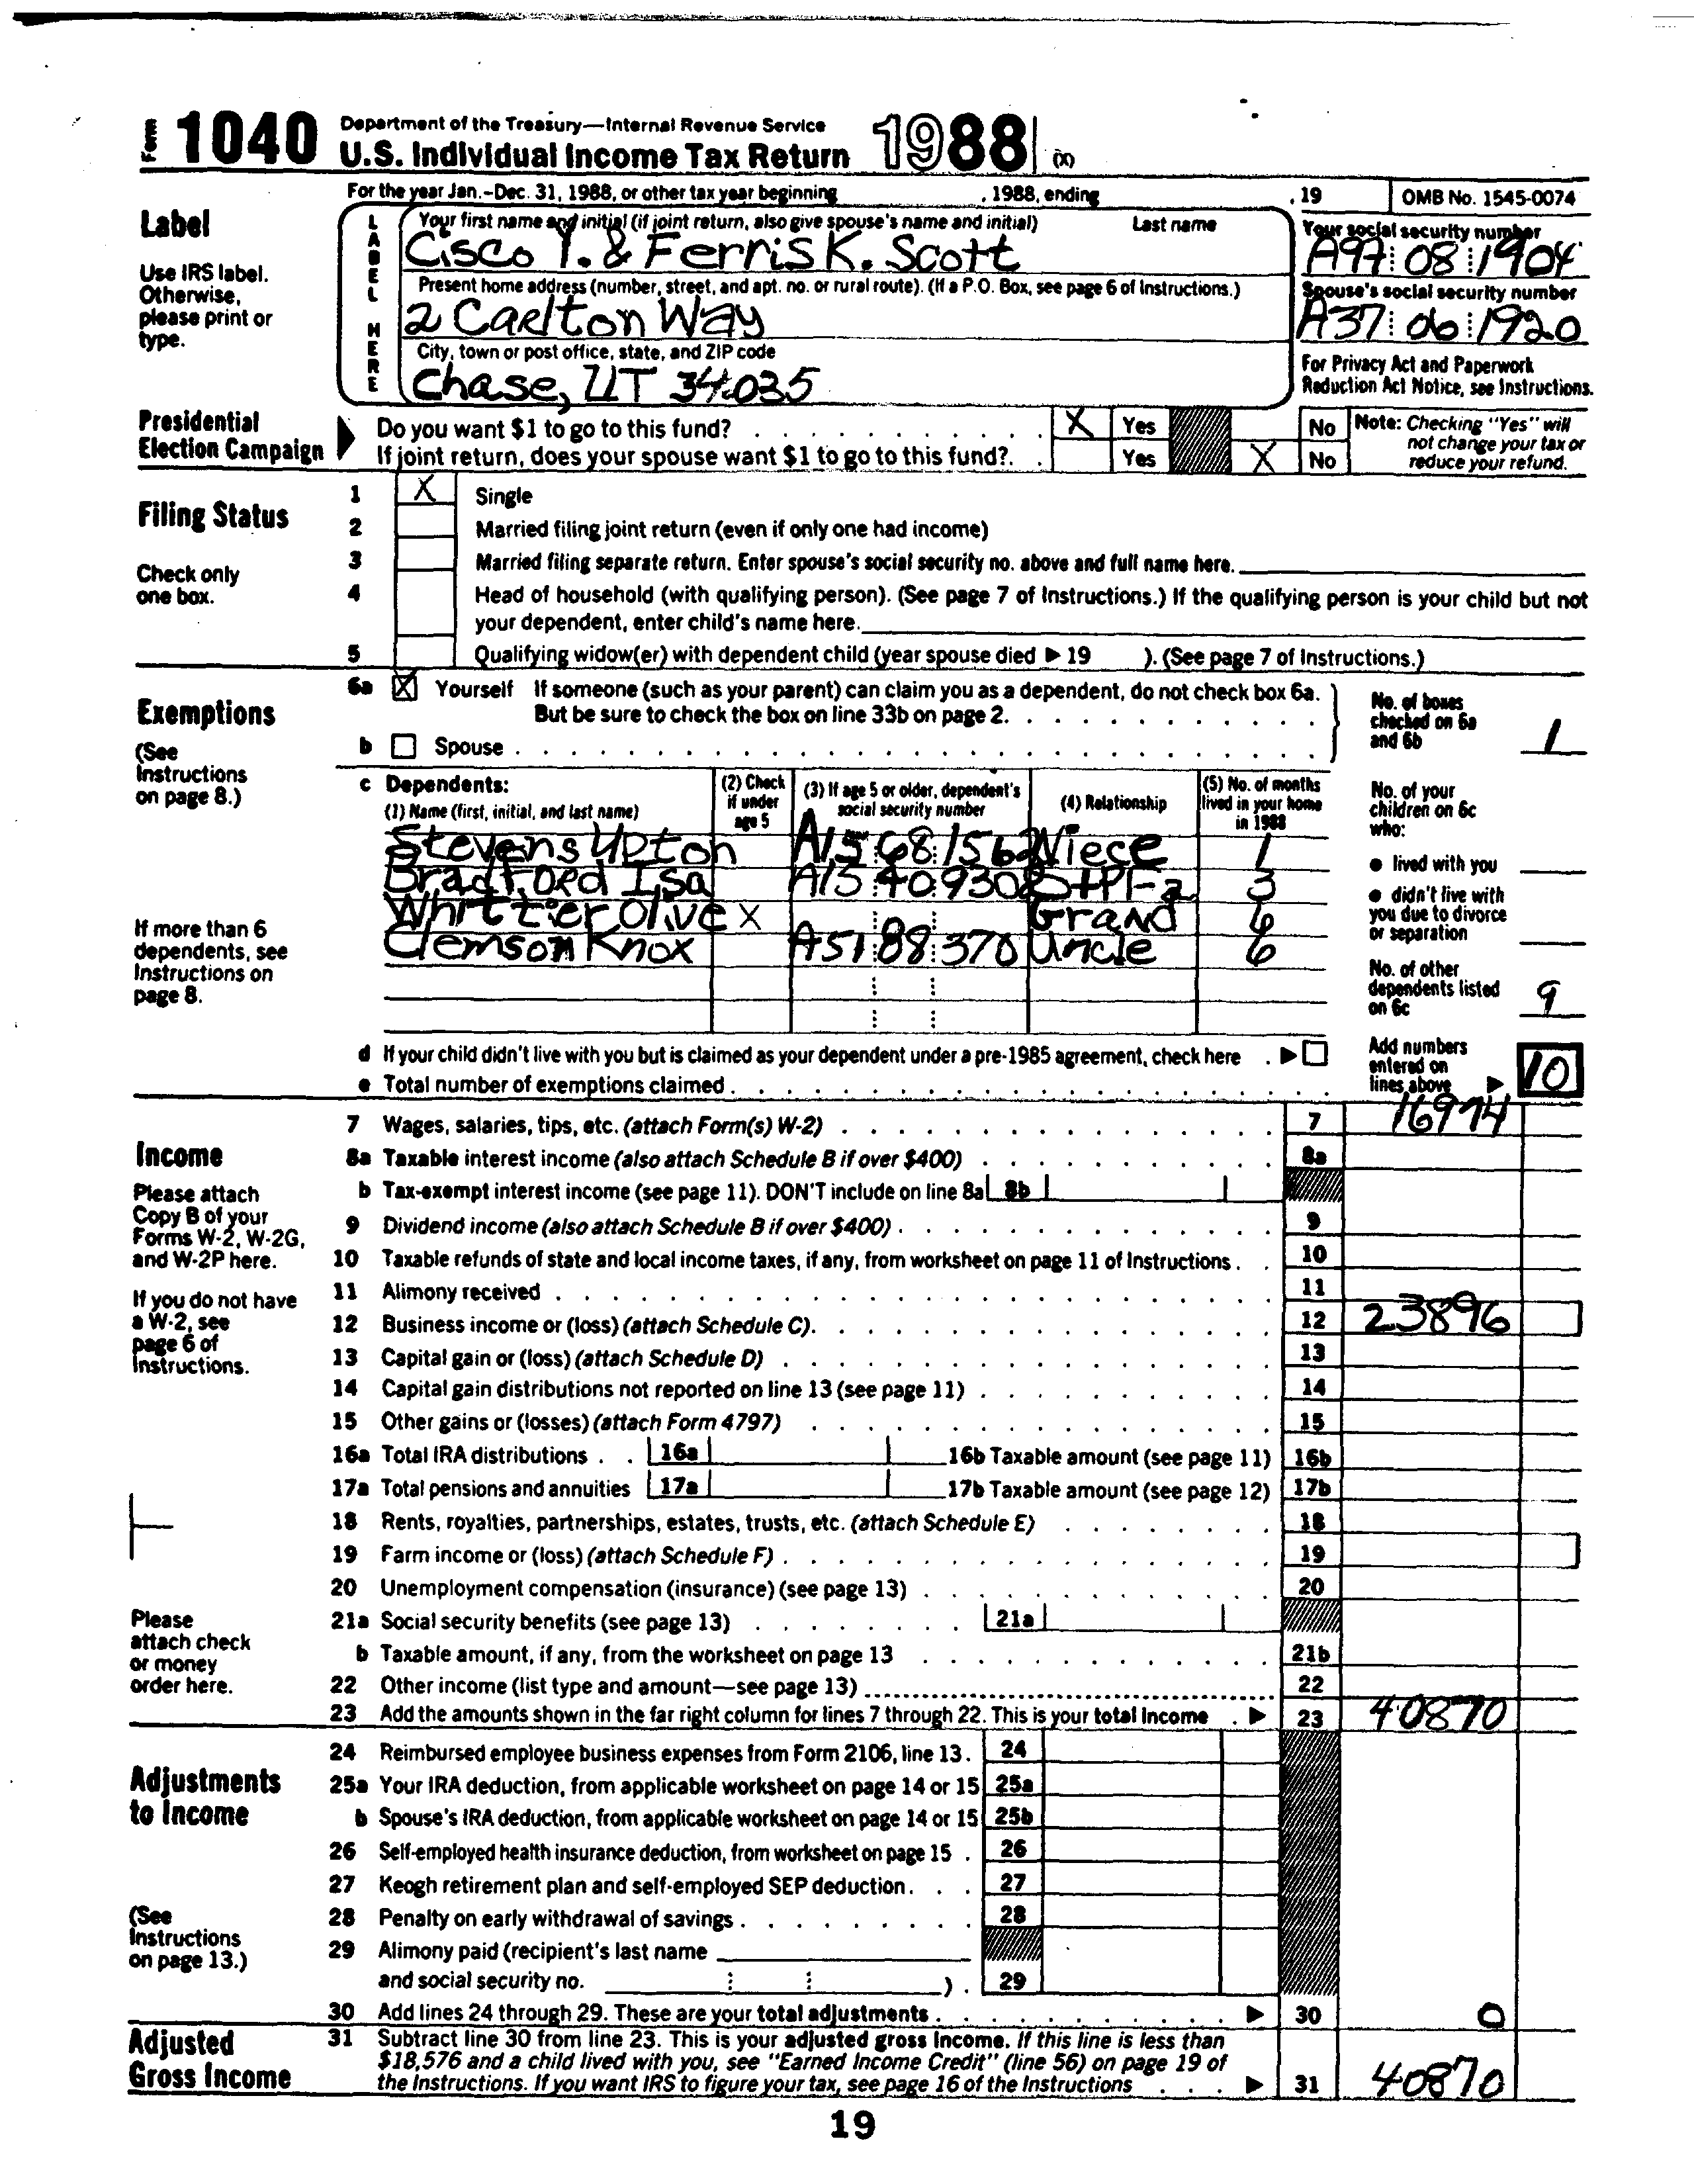 Form 1040 Department of the Treasury—Internal Revenue Service
U.S. Individual Income Tax Return 1988 (X)
For the year Jan.-Dec. 31, 1988, or other tax year beginning , 1988, ending , 19 OMB No. 1545-0074
Label
Use IRS label. Otherwise, please print or type.
LABEL HERE
Your first name and initial (if joint return, also give spouse's name and initial) Last name
Cisco Y. & Ferris K. Scott
Your social security number
A97 08 1904
Present home address (number, street, and apt. no. or rural route). (If a P.O. Box, see page 6 of Instructions.)
2 Carlton Way
Spouse's social security number
A37 06 1920
City, town or post office, state, and ZIP code
Chase, UT 34035
For Privacy Act and Paperwork Reduction Act Notice, see Instructions.
Presidential Election Campaign
Do you want $1 to go to this fund? X Yes No
If joint return, does your spouse want $1 to go to this fund? Yes X No
Note: Checking "Yes" will not change your tax or reduce your refund.
Filing Status
Check only one box.
1 X Single
2 Married filing joint return (even if only one had income)
3 Married filing separate return. Enter spouse's social security no. above and full name here.
4 Head of household (with qualifying person). (See page 7 of Instructions.) If the qualifying person is your child but not
your dependent, enter child's name here.
5 Qualifying widow(er) with dependent child (year spouse died ▶ 19 ). (See page 7 of Instructions.)
Exemptions
(See Instructions on page 8.)
6a X Yourself If someone (such as your parent) can claim you as a dependent, do not check box 6a.
But be sure to check the box on line 33b on page 2.
b Spouse
No. of boxes checked on 6a and 6b 1
c Dependents:
(1) Name (first, initial, and last name) (2) Check if under age 5 (3) If age 5 or older, dependent's social security number (4) Relationship (5) No. of months lived in your home in 1988
Stevens Upton A15 68 1562 Niece 1
Bradford Isa A15 40 9308 3
Whittier Olive X Grand 6
Clemson Knox A51 88 370 Uncle 6
No. of your children on 6c who:
● lived with you
● didn't live with you due to divorce or separation
No. of other dependents listed on 6c 9
If more than 6 dependents, see Instructions on page 8.
d If your child didn't live with you but is claimed as your dependent under a pre-1985 agreement, check here ▶
e Total number of exemptions claimed
Add numbers entered on lines above ▶ 10
Income
Please attach Copy B of your Forms W-2, W-2G, and W-2P here.
If you do not have a W-2, see page 6 of Instructions.
Please attach check or money order here.
7 Wages, salaries, tips, etc. (attach Form(s) W-2) 7 16974
8a Taxable interest income (also attach Schedule B if over $400) 8a
b Tax-exempt interest income (see page 11). DON'T include on line 8a 8b
9 Dividend income (also attach Schedule B if over $400) 9
10 Taxable refunds of state and local income taxes, if any, from worksheet on page 11 of Instructions 10
11 Alimony received 11
12 Business income or (loss) (attach Schedule C) 12 23896
13 Capital gain or (loss) (attach Schedule D) 13
14 Capital gain distributions not reported on line 13 (see page 11) 14
15 Other gains or (losses) (attach Form 4797) 15
16a Total IRA distributions 16a 16b Taxable amount (see page 11) 16b
17a Total pensions and annuities 17a 17b Taxable amount (see page 12) 17b
18 Rents, royalties, partnerships, estates, trusts, etc. (attach Schedule E) 18
19 Farm income or (loss) (attach Schedule F) 19
20 Unemployment compensation (insurance) (see page 13) 20
21a Social security benefits (see page 13) 21a
b Taxable amount, if any, from the worksheet on page 13 21b
22 Other income (list type and amount—see page 13) 22
23 Add the amounts shown in the far right column for lines 7 through 22. This is your total income ▶ 23 40870
Adjustments to Income
(See Instructions on page 13.)
24 Reimbursed employee business expenses from Form 2106, line 13. 24
25a Your IRA deduction, from applicable worksheet on page 14 or 15 25a
b Spouse's IRA deduction, from applicable worksheet on page 14 or 15 25b
26 Self-employed health insurance deduction, from worksheet on page 15 26
27 Keogh retirement plan and self-employed SEP deduction 27
28 Penalty on early withdrawal of savings 28
29 Alimony paid (recipient's last name
and social security no. ) 29
30 Add lines 24 through 29. These are your total adjustments ▶ 30 0
Adjusted Gross Income
31 Subtract line 30 from line 23. This is your adjusted gross income. If this line is less than
$18,576 and a child lived with you, see "Earned Income Credit" (line 56) on page 19 of
the Instructions. If you want IRS to figure your tax, see page 16 of the Instructions ▶ 31 40870
19